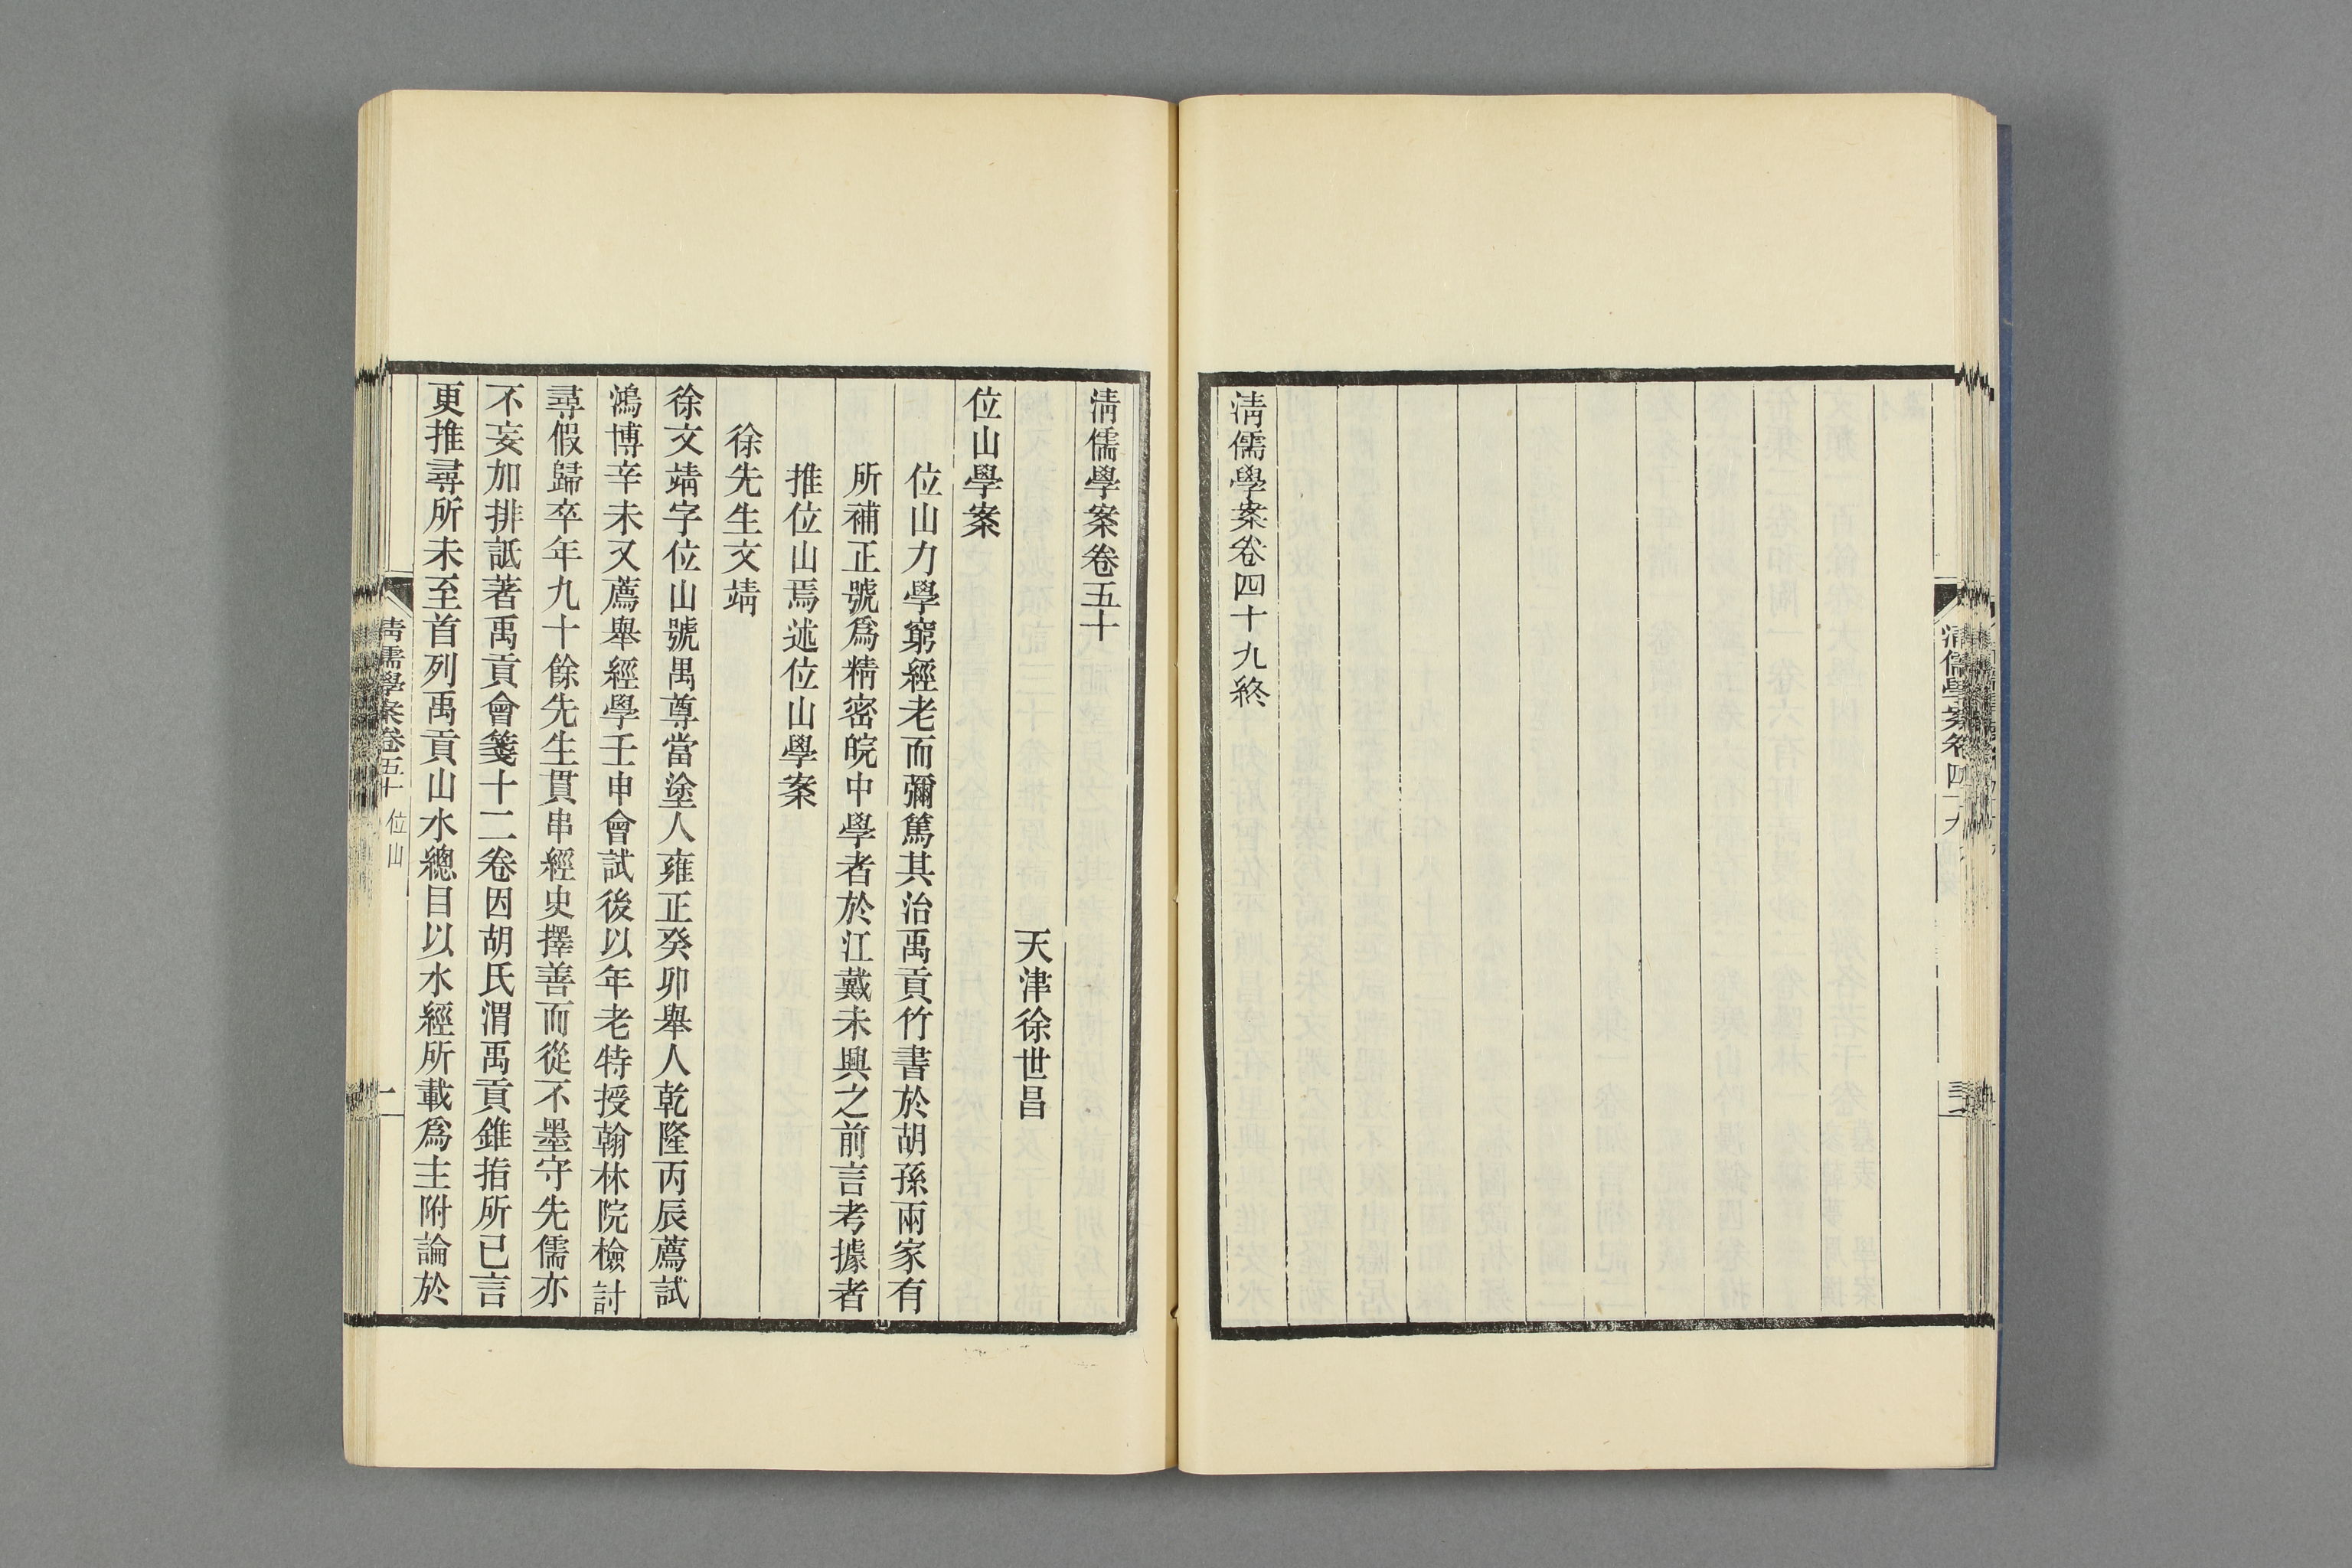 清儒學案卷四十九終
清儒學案卷五十
天津徐世昌
位山學案
位山力學窮經老而彌篤其治禹貢竹書於胡孫兩家有
所補正號爲精密皖中學者於江戴未興之前言考據者
推位山焉述位山學案
徐先生文靖
徐文靖字位山號禺尊當塗人雍正癸卯舉人乾隆丙辰薦試
鴻博辛未又薦舉經學壬申會試後以年老特授翰林院檢討
尋假歸卒年九十餘先生貫串經史擇善而從不墨守先儒亦
不妄加排詆著禹貢會箋十二卷因胡氏渭禹貢錐指所已言
更推尋所未至首列禹貢山水總目以水經所載爲主附論於
清儒學案卷五十
位山
一